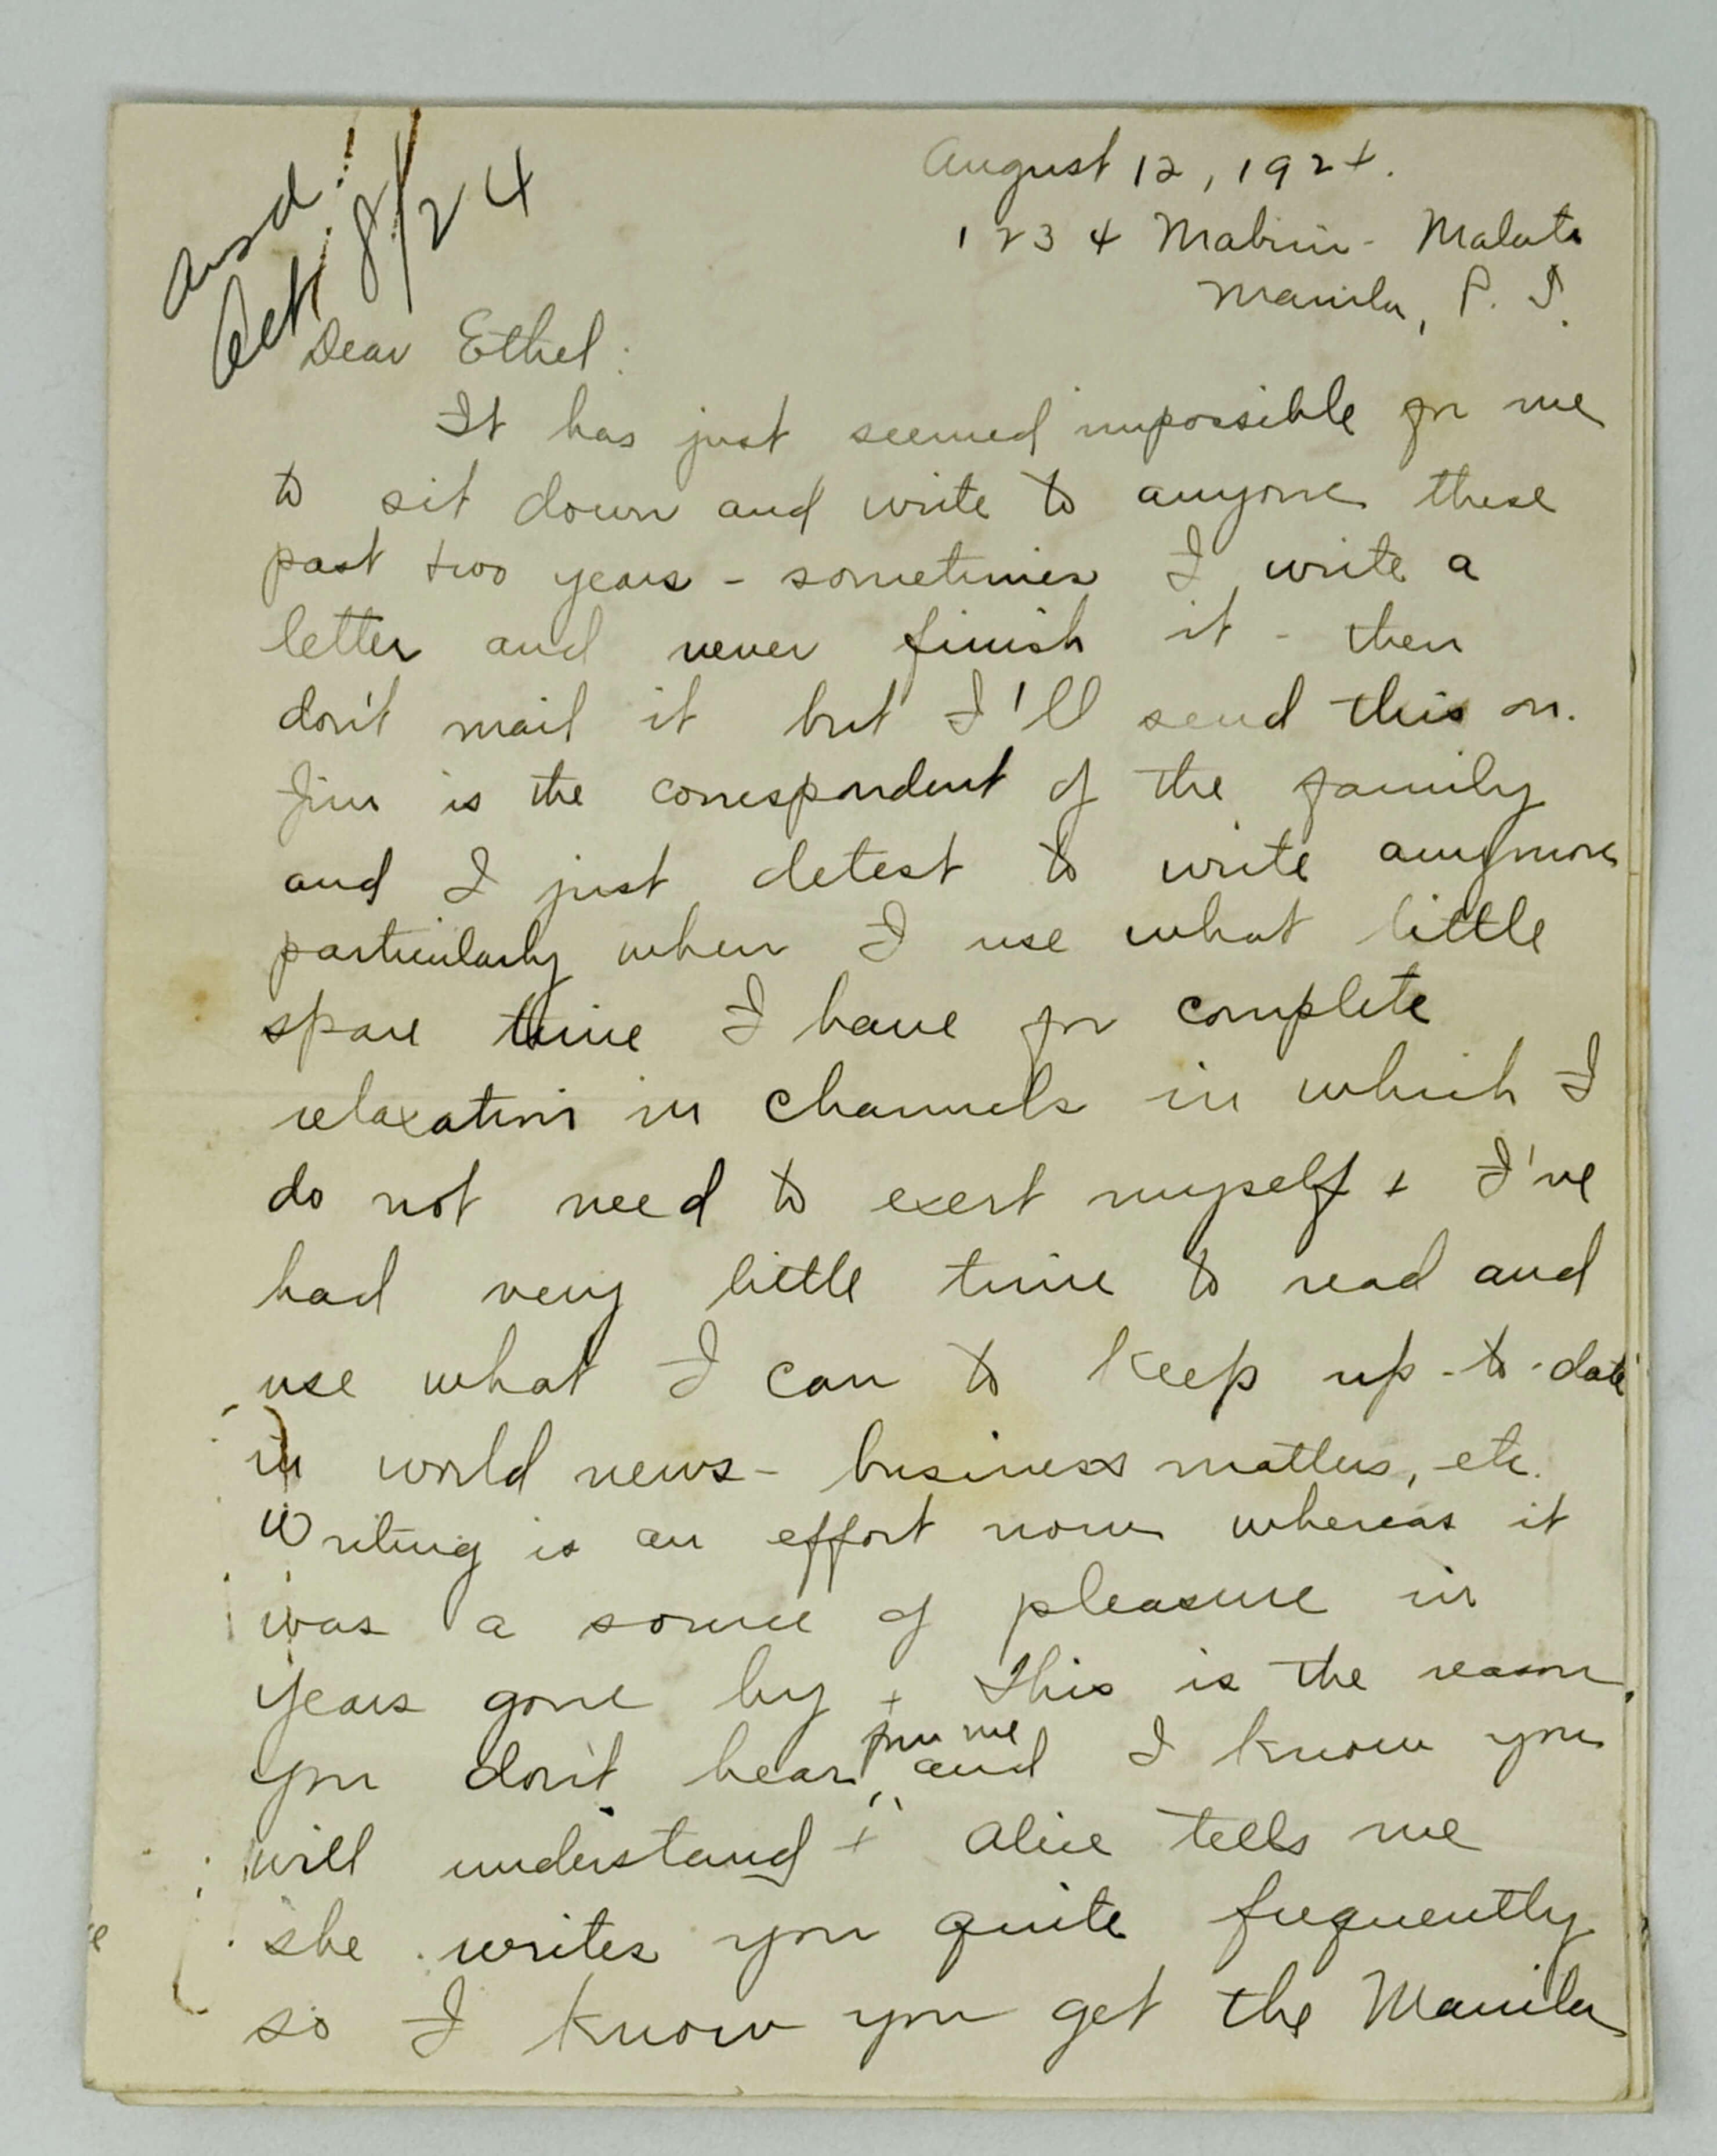 ansd.
Oct 8/24
August 12, 1924.
1234 Mabini - Malate
Manila, P. I.
Dear Ethel:
It has just seemed impossible for me
to sit down and write to anyone these
past two years - sometimes I write a
letter and never finish it - then
don't mail it but I'll send this on.
Jim is the correspondent of the family
and I just detest to write anymore
particularly when I use what little
spare time I have for complete
relaxation in channels in which I
do not need to exert myself + I've
had very little time to read and
use what I can to keep up-to-date
in world news - business matters, etc.
Writing is an effort now whereas it
was a source of pleasure in
years gone by + this is the reason
you don't hear from me, and I know you
will understand + Alice tells me
she writes you quite frequently
so I know you get the Manila